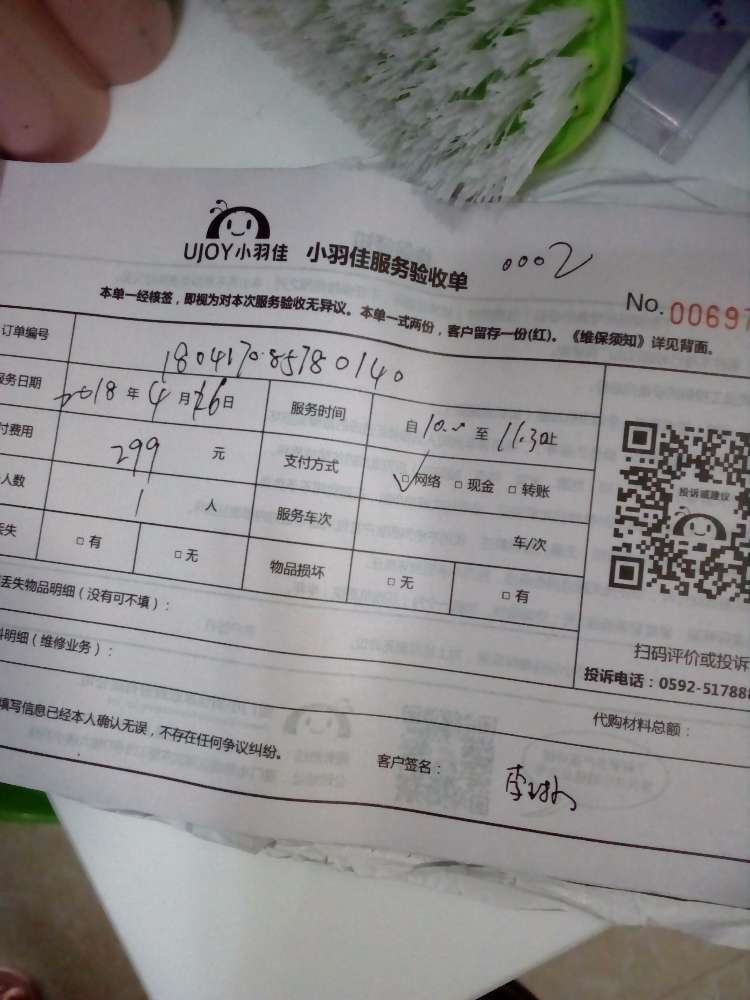 UJOY小羽佳 小羽佳服务验收单 0002
No. 00697
本单一经核签，即视为对本次服务验收无异议。本单一式两份，客户留存一份(红)。《维保须知》详见背面。
订单编号 180417085780140
务日期 2018年4月26日 服务时间 自10.00至11.30止
付费用 299元 支付方式 ☑网络 □现金 □转账
人数 1人 服务车次 车/次
丢失 □有 □无 物品损坏 □无 □有
投诉或建议
丢失物品明细（没有可不填）：
料明细（维修业务）：
扫码评价或投诉
投诉电话：0592-517888
代购材料总额：
填写信息已经本人确认无误，不存在任何争议纠纷。
客户签名：